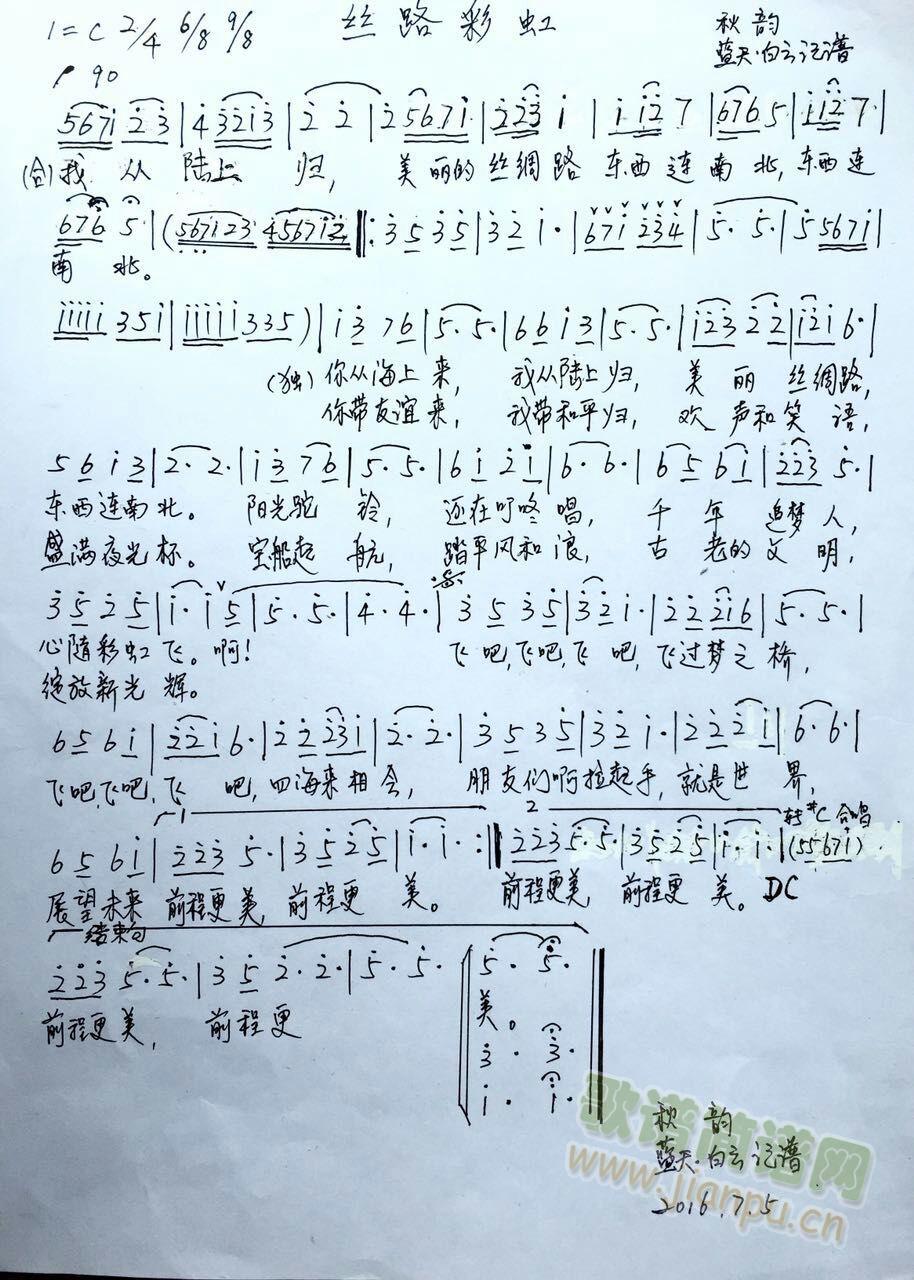 1=C 2/4 6/8 9/8 丝路彩虹 秋韵
蓝天·白云记谱
♩ 90
5671 23|4 3213|2 2|2 5671|2 23 1|1 12 7|676 5|112 7·|
(合)我 从 陆上 归, 美丽的丝绸路 东西连南北,东西连
676 5·|(567123 456712‖:3 5 3 5|3 2 1·|671 234|5· 5·|5 5671|
南 北。
11111 351|11111 335)|1 3 7 6|5· 5·|6 6 1 3|5· 5·|123 2 2|121 6·|
(独)你从海上来, 我从陆上归, 美 丽 丝绸路,
你带友谊来, 我带和平归, 欢 声和笑 语,
5 6 1 3|2· 2·|1 3 7 6|5· 5·|6 1 2 1|6· 6·|6 5 6 1|223 5·|
东西连南北。 阳光驼 铃, 还在叮咚 唱, 千 年 追梦人,
盛满夜光杯。 宝船起 航, 踏平风和浪, 古 老的文 明,
3 5 2 5|1· 1 5|5· 5·|4· 4·|3 5 3 5|3 2 1·|2 2 216|5· 5·|
心随彩虹飞。啊! 飞吧,飞吧,飞 吧,飞过梦之桥,
绽放新光辉。
6 5 6 1|221 6·|2 2 231|2· 2·|3 5 3 5|3 2 1·|2 2 2 1|6· 6·|
飞吧飞吧,飞 吧,四海来相会, 朋友们啊拉起手,就是世 界,
1 2 转#C合唱
6 5 6 1|223 5·|3 5 2 5|1· 1· :‖223 5·5·|3 5 2 5|1· 1·|(55671)
展望未来 前程更美,前程更 美。 前程更美, 前程更 美。DC
结束句
223 5·5·|3 5 2·2·|5· 5· 5· 5·
前程更美, 前程更 美。
3· 3·
1· 1·
歌谱简谱网
www.jianpu.cn
秋 韵
蓝天·白云记谱
2016.7.5